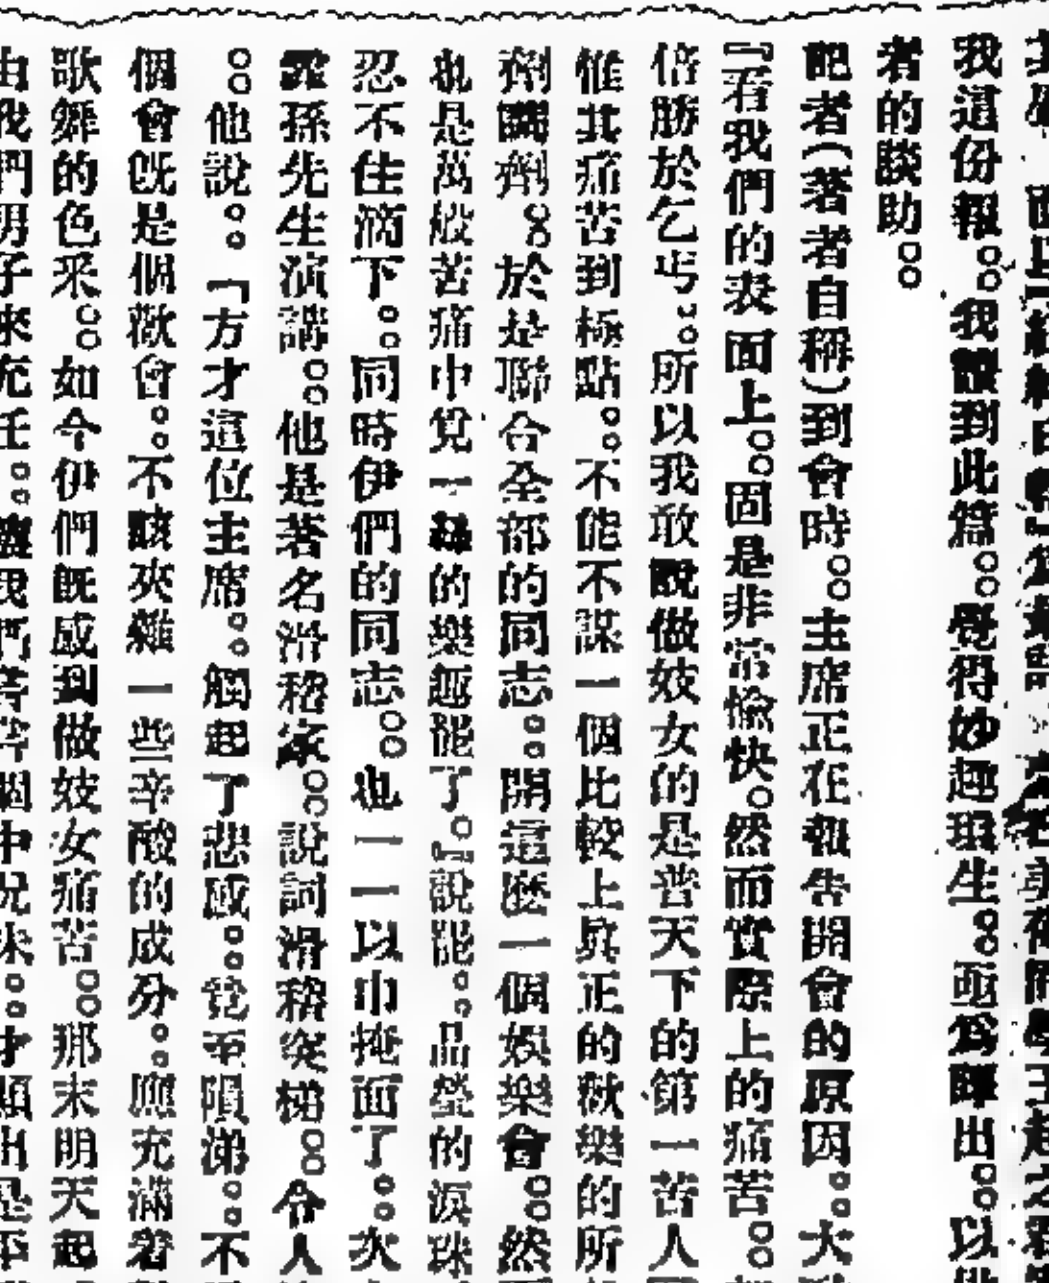 我這份報。。我讀到此篇。。覺得妙趣環生。。亟爲譯出。。以
者的談助。。
記者(著者自稱)到會時。。主席正在報告開會的原因。。大
『看我們的表面上。。固是非常愉快。然而實際上的痛苦。。
倍勝於乞丐。。所以我敢說做妓女的是普天下的第一苦人
惟其痛苦到極點。。不能不謀一個比較上眞正的歡樂的所
劑調劑。。於是聯合全部的同志。。開這麽一個娛樂會。。然
也是萬般苦痛中覓一絲的樂趣罷了。』說罷。。晶瑩的淚珠
忍不住滴下。。同時伊們的同志。。也一一以巾掩面了。。次
霖孫先生演講。。他是著名滑稽家。。說詞滑稽突梯。。令人
。。他說。。「方才這位主席。。觸起了悲感。。竟至隕涕。。不
個會旣是個歡會。。不該夾雜一些辛酸的成分。。應充滿着
歌舞的色釆。。如今伊們旣感到做妓女痛苦。。那末明天起
由我們男子來充任。。